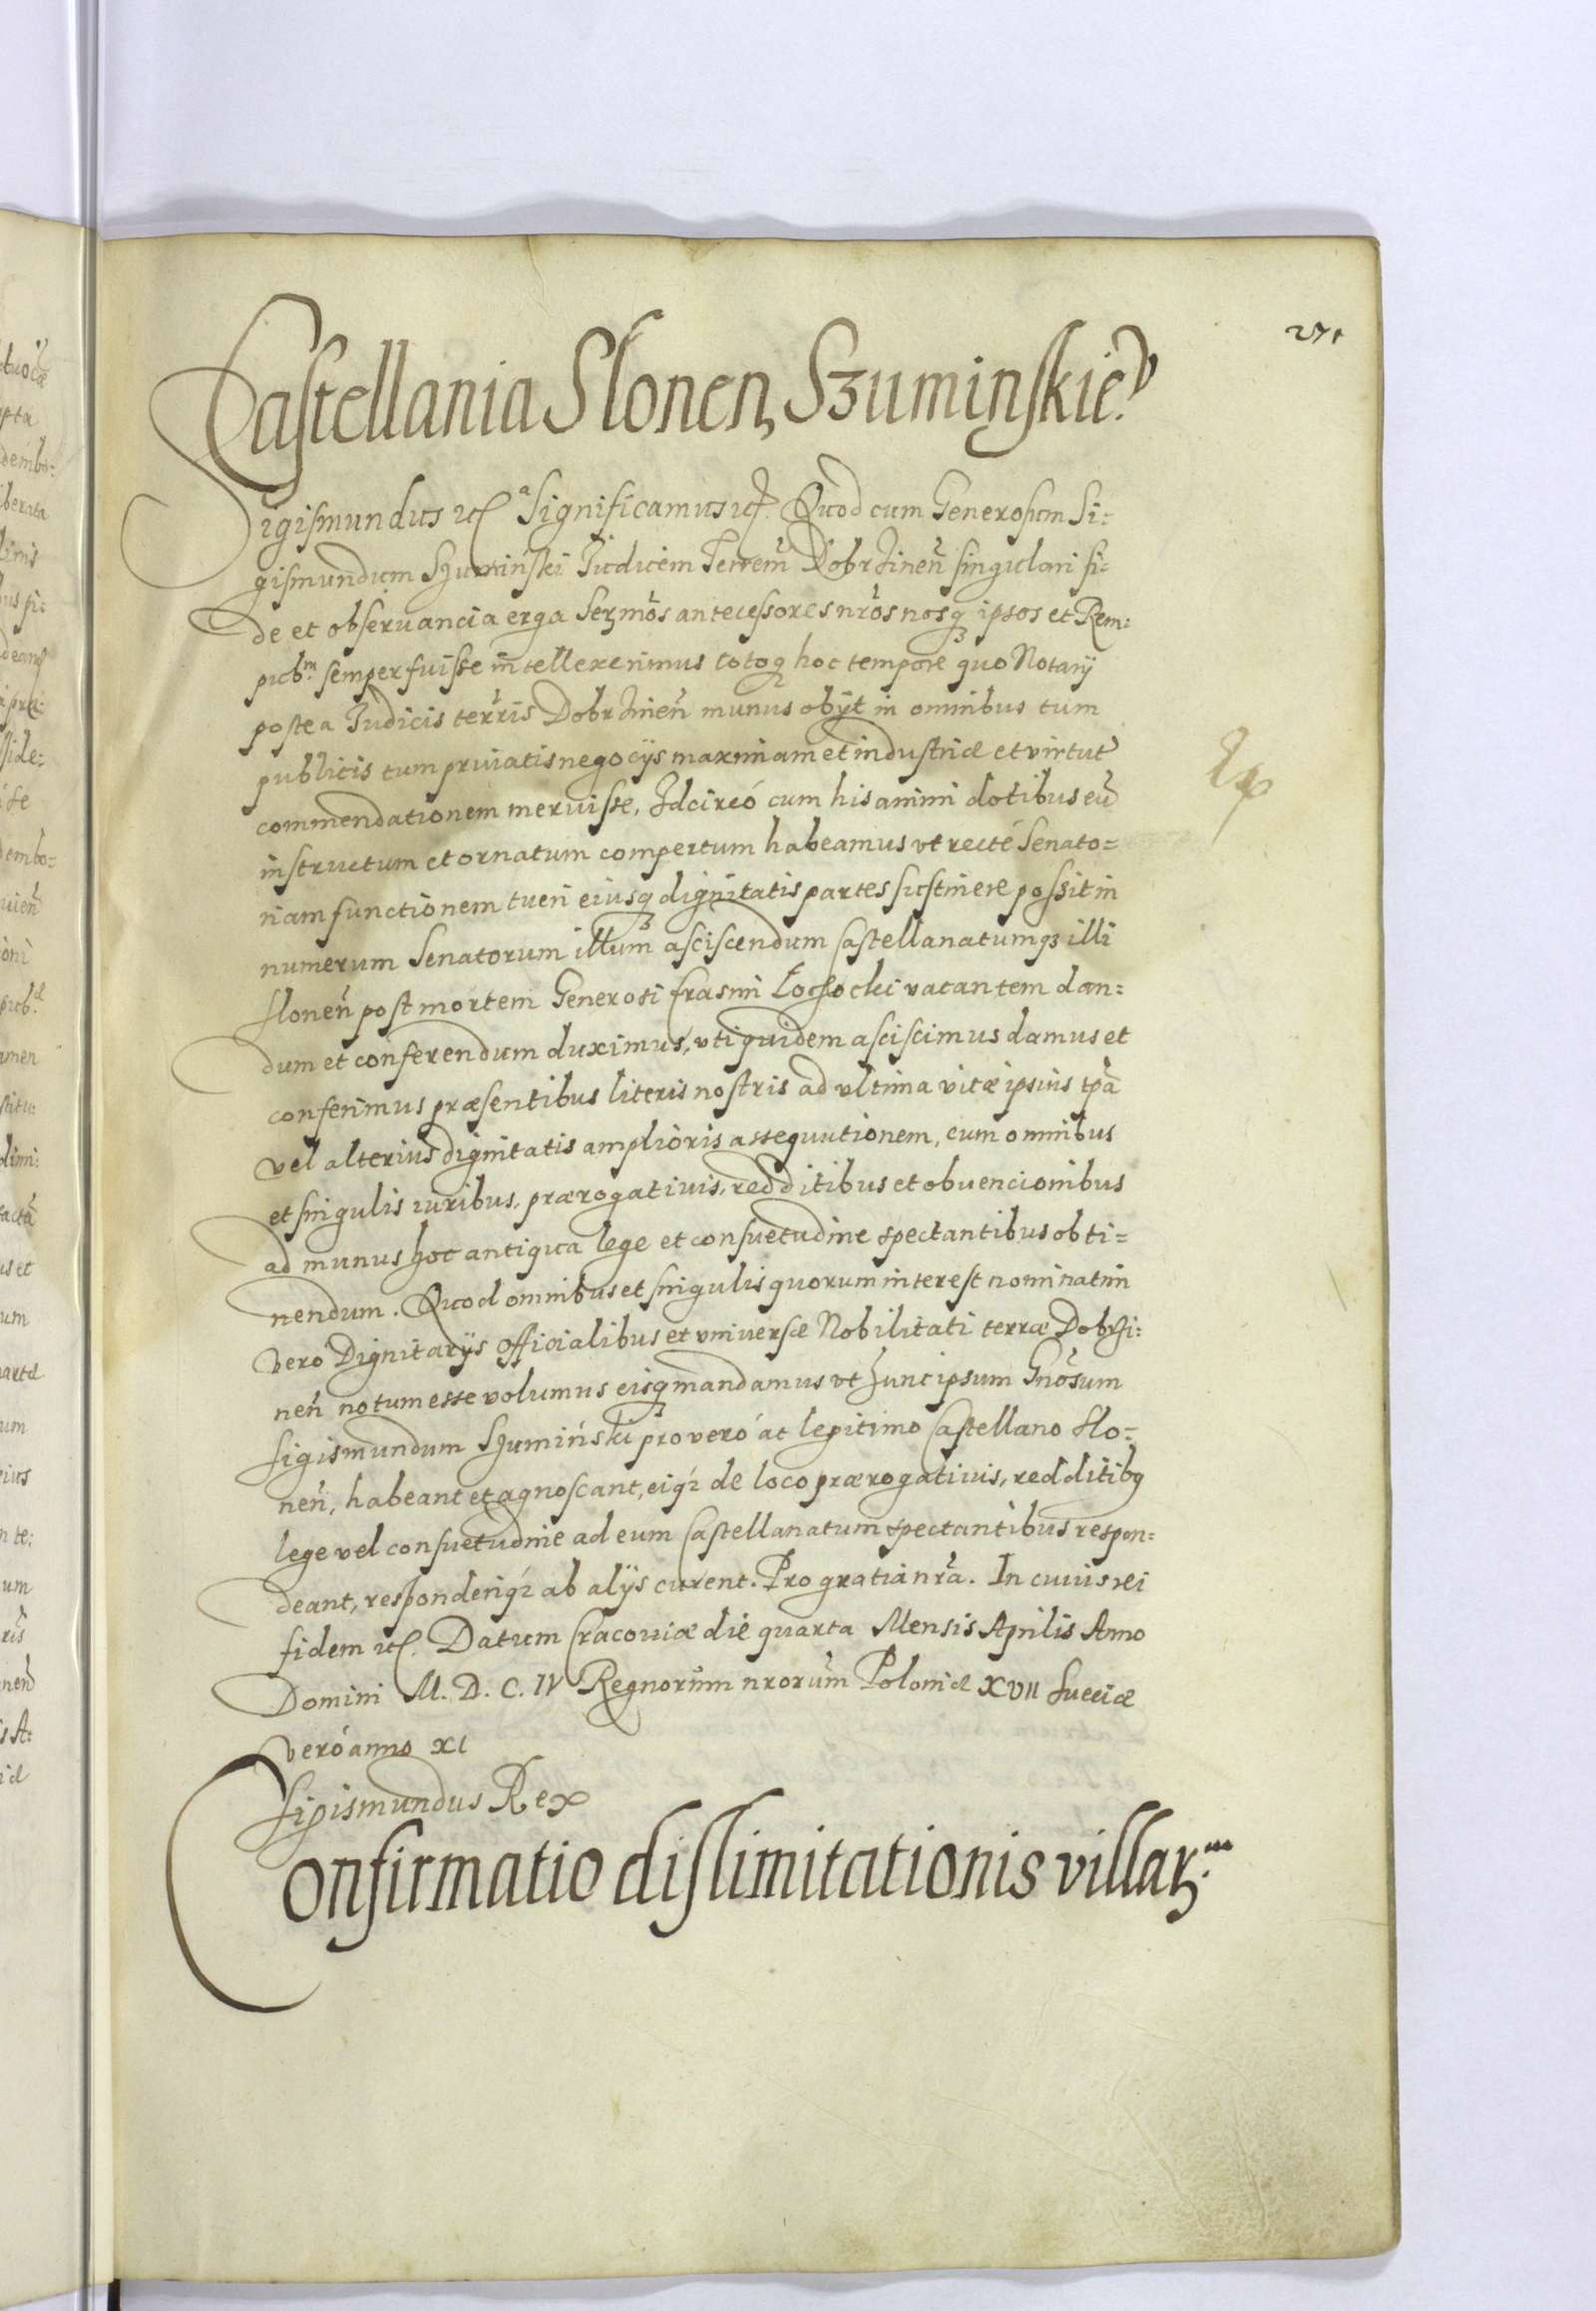 271
Castellania Slonen̄ Szuminskie.
Sigismundus etc. Significamus etc. Quod cum Generosum Si:
gismundum Szumiński Judicem Terren̄ Dobrzinen̄ singulari fi:
de et obseruancia erga Serm̄os antecessores nr̄os nosq ipsos et Rem:
pub.m semper fuisse intellexerimus totoq hoc tempore quo Notarij
postea Judicis terr̄ris Dobrzinen̄ munus obijt in omnibus tum
publicis tum priuatis negocijs maximam et industriæ et virtut
commendationem meruisse, Idcircó cum his animi dotibus eū
instructum et ornatum compertum habeamus vt recté Senato=
riam functionem tueri eiusq dignitatis partes sustinere possit in
numerum Senatorum illum asciscendum Castellanatumq illi
Slonen̄ post mortem Generosi Erasmi vacantem dan:
dum et conferendum duximus, vti quidem asciscimus damus et
conferimus præsentibus literis nostris ad vltima vitæ ipsius tp̄a
vel alterius dignitatis amplioris assequutionem, cum omnibus
et singulis iuribus, prærogatiuis, redditibus et obuencionibus
ad munus hoc antiqua lege et consuetudine spectantibus obti=
nendum. Quod omnibus et singulis quorum interest nominatim
vero Dignitarijs Officialibus et vniuersæ Nobilitati terræ Dobrzi:
nen̄ notum esse volumus eisq mandamus vt hunc ipsum Gn̄osum
Sigismundum Szumiński pro veró ac legitimo Castellano Slo=
nen̄, habeant et agnoscant, eiq de loco prærogatiuis, redditibq
lege vel consuetudine ad eum Castellanatum spectantibus respon=
deant, responderiq ab alijs curent. Pro gratia nr̄a. In cuius rei
fidem etc. Datum Cracouiæ die quarta Mensis Aprilis Anno
Domini M. D. C. IV Regnorum nrorum Poloniæ XVII Sueciæ
veró anno XI
Sigismundus Rex
Confirmatio dislimitationis villar.m